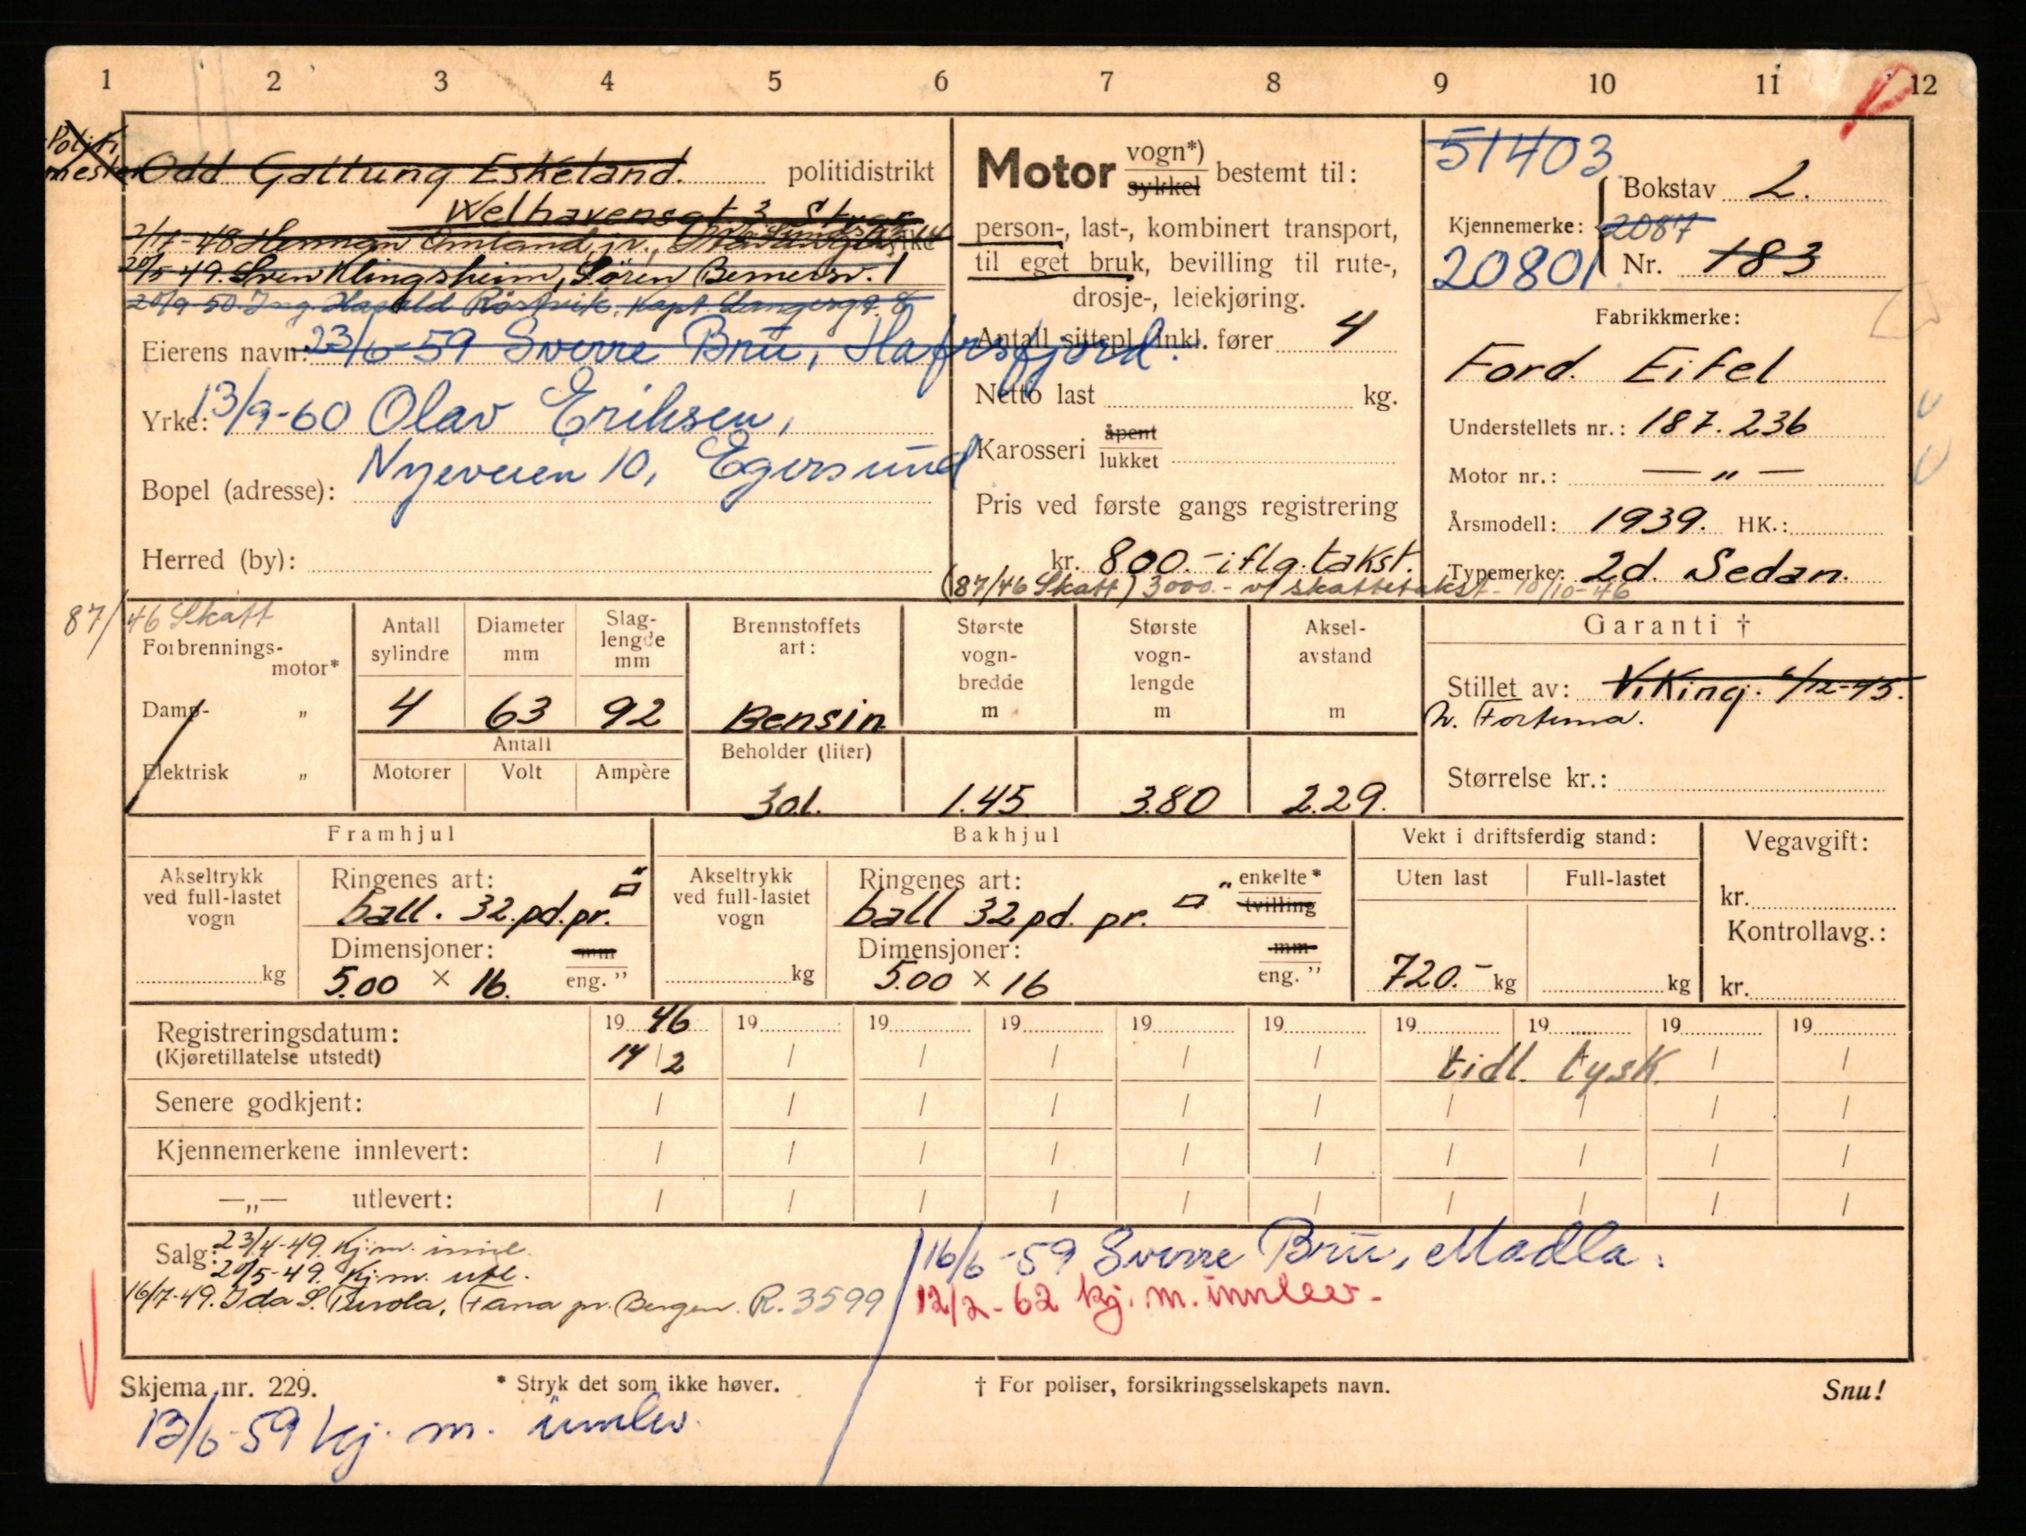 1 2 3 4 5 6 7 8 9 10 11 12
Politi
mester Odd Galtung Eskeland. politidistrikt
Welhavensgt. 3
2/7-48 Herman Omland jr.,
20/5-49. Sven Klingsheim, Sören Bernersv. 1
20/9-50 Ing. Harald Röstvik, Kapt. Langesgt. 8
Eierens navn: 23/6-59 Sverre Brü, Hafrsfjord.
Yrke: 13/9-60 Olav Eriksen,
Nyeveien 10, Egersund
Bopel (adresse):
Herred (by):
Motor vogn*) sykkel bestemt til:
person-, last-, kombinert transport,
til eget bruk, bevilling til rute-,
drosje-, leiekjøring.
Antall sittepl. inkl. fører 4
Netto last kg.
Karosseri åpent lukket
Pris ved første gangs registrering
kr. 800.- iflg. takst.
(87/46 Skatt) 3000.- v/ skattetakst - 10/10-46
51403
Bokstav L.
Kjennemerke: 2087
20801 Nr. 183
Fabrikkmerke:
Ford. Eifel
Understellets nr.: 187.236
Motor nr.: — „ —
Årsmodell: 1939. HK.:
Typemerke: 2d. Sedan.
87/46 Skatt
Forbrennings-motor*
Damp- „
Elektrisk „
Antall sylindre 4
Diameter mm 63
Slag-lengde mm 92
Antall
Motorer Volt Ampère
Brennstoffets art: Bensin
Beholder (liter) 30 l.
Største vogn-bredde m 1.45
Største vogn-lengde m 3.80
Aksel-avstand m 2.29.
Garanti †
Stillet av: Viking. 6/12-45.
N. Fortuna.
Størrelse kr.:
Framhjul
Akseltrykk ved full-lastet vogn kg
Ringenes art: ball. 32.pd.pr. □"
Dimensjoner: 5.00 × 16. mm eng. ”
Bakhjul
Akseltrykk ved full-lastet vogn kg
Ringenes art: ball 32 pd. pr. □" enkelte* tvilling
Dimensjoner: 5.00 × 16 mm eng. ”
Vekt i driftsferdig stand:
Uten last Full-lastet
720.- kg kg
Vegavgift:
kr.
Kontrollavg.:
kr.
Registreringsdatum: 19 46 19 19 19 19 19 19 19 19 19
(Kjøretillatelse utstedt) 14/2 / / / / / tidl. tysk. / /
Senere godkjent: / / / / / / / / / /
Kjennemerkene innlevert: / / / / / / / / / /
—„— utlevert: / / / / / / / / / /
Salg: 23/4-49. Kj.m. innl.
20/5-49. Kj.m. utl.
16/7-49. Ida S. Berola, Fana pr. Bergen. R. 3599
16/6-59 Sverre Brü, Madla.
12/2-62 kj. m. innlev.-
Skjema nr. 229. * Stryk det som ikke høver. † For poliser, forsikringsselskapets navn. Snu!
13/6-59 kj. m. innlev.